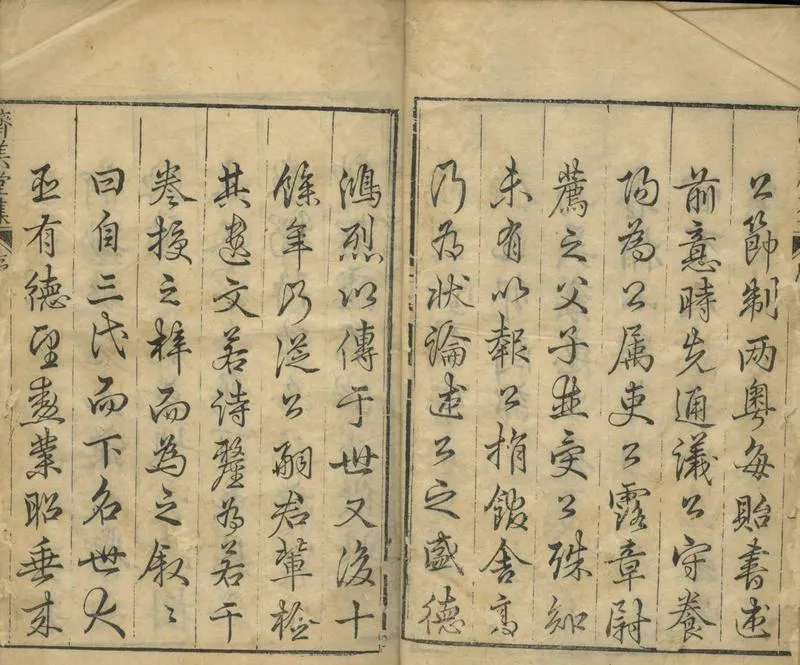 公節制两粤每貽書述
前意時先通議公守襄
陽為公属吏公露章尉
薦之父子並受公殊知
未有以報公捐館舍高
乃為狀論述公之盛德
鴻烈以傳于世又後十
餘年乃從公嗣君輩檢
其遺文若詩釐為若干
卷授之梓而為之叙〻
曰自三代而下名世大
臣有德望勳業昭垂来
濟美堂集
序